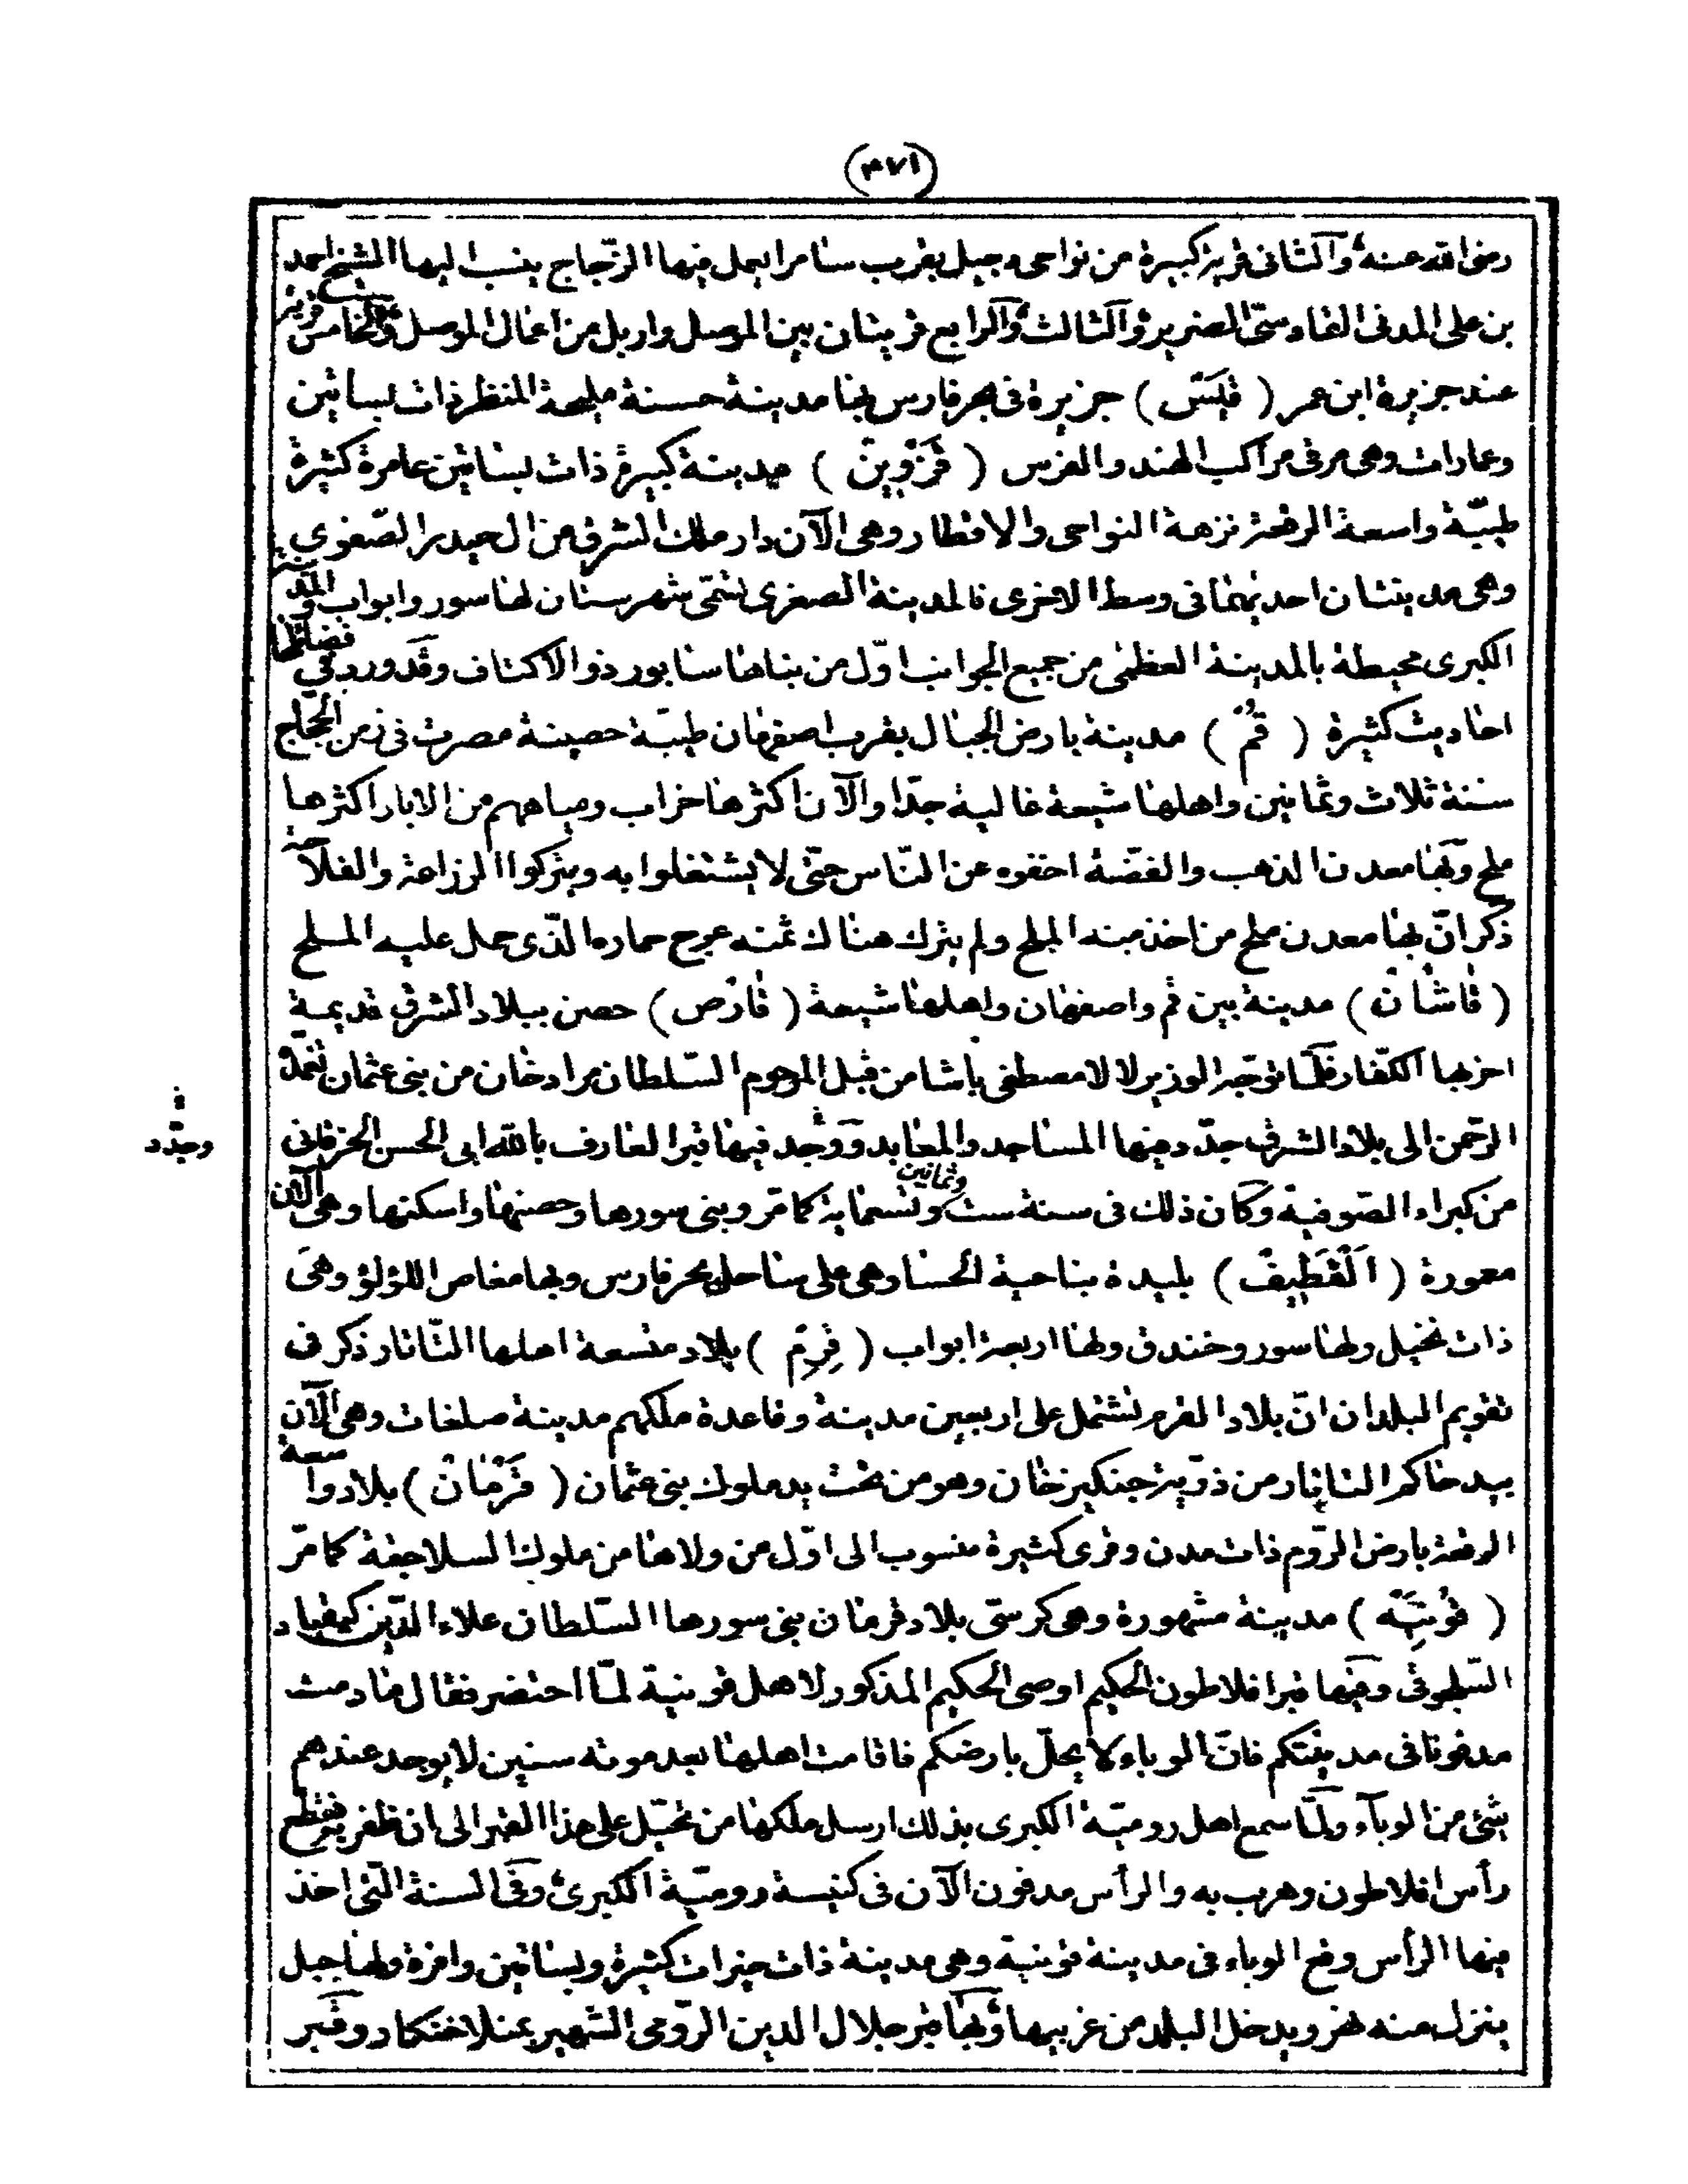 (٤٧١)
رضى الله عنه والثانى قرية كبيرة من نواحى دجيل بقرب سامرا يعمل فيها الزجاج ينسب اليها الشيخ احمد
بن على المدنى القادسىّ الضرير والثالث والرابع قريتان بين الموصل واربل من اعمال الموصل والخامس قرية
عند جزيرة ابن عمر ( قَيْس ) جزيرة فى بحر فارس بها مدينة حسنة مليحة المنظر ذات بساتين
وعمارات وهى مرفى مراكب الهند والفرس ( قَزْوِين ) مدينة كبيرة ذات بساتين عامرة كثيرة
طيبّة واسعة الرقعة نزهة النواحى والاقطار وهى الآن دار ملك الشرق من ال حيدر الصّفوى
وهى مدينتان احديهما فى وسط الاخرى فالمدينة الصغرى تسمّى شهرستان لها سور وابواب والمدينة
الكبرى محيطة بالمدينة العظمى من جميع الجوانب اوّل من بناها سابور ذو الاكتاف وقد ورد فى فضلها
احاديث كثيرة ( قُمّ ) مدينة بارض الجبال بقرب اصفهان طيبّة حصينة مصرت فى زمن الحجّاج
سنة ثلاث وثمانين واهلها شيعة غالية جدّا والآن اكثرها خراب ومياههم من الابار اكثرها
ملح وبها معدن الذهب والفضّة اخفوه عن النّاس حتّى لا يشتغلوا به ويتركوا الزراعة والفلاحة
ذكر انّ بها معدن ملح من اخذ منه الملح ولم يترك هناك ثمنه عرج حماره الذّى حمل عليه الملح
( قَاشَان ) مدينة بين قم واصفهان واهلها شيعة ( قَارْص ) حصن ببلاد الشرق قديمة
اخربها الكفّار فلمّا توجّه الوزير لالا مصطفى باشا من قبل المرحوم السّلطان مراد خان من بنى عثمان تغمّده
الرّحمن الى بلاد الشرق جدّد فيها المساجد والمعابد ووجد فيها قبر العارف بالله ابى الحسن الخرقانى
وجدّد
من كبراء الصّوفية وكان ذلك فى سنة ست وثمانين وتسعماية كما مرّ وبنى سورها وحصنها واسكنها وهى الآن
معمورة ( اَلْقَطِيف ) بليدة بناحية الحسا وهى على ساحل بحر فارس وبها مغاص اللؤلؤ وهى
ذات نخيل ولها سور وخندق ولها اربعة ابواب ( قِرِم ) بلاد متسعة اهلها التّاتار ذكر فى
تقويم البلدان انّ بلاد القرم تشتمل على اربعين مدينة وقاعدة ملكهم مدينة صلغات وهى الآن
بيد حاكم التاتار من ذرّية جنكيز خان وهو من تحت يد ملوك بنى عثمان ( قَرْمَان ) بلاد واسعة
الرقعة بارض الرّوم ذات مدن وقرى كثيرة منسوب الى اوّل من ولاها من ملوك السلاجقة كما مرّ
( قُونِيَه ) مدينة مشهورة وهى كرسىّ بلاد قرمان بنى سورها السّلطان علاء الدّين كيقباد
السّلجوقى وفيها قبر افلاطون الحكيم اوصى الحكيم المذكور لاهل قونية لمّا احتضر فقال ما دمت
مدفونا فى مدينتكم فانّ الوباء لا يحلّ بارضكم فاقامت اهلها بعد موته سنين لا يوجد عندهم
شئ من الوبآء ولمّا سمع اهل روميّة الكبرى بذلك ارسل ملكها من تحيّل على هذا القبر الى ان ظفر به فقطع
رأس افلاطون وهرب به والرأس مدفون الآن فى كنيسة روميّة الكبرى وفى السنة التّى اخذ
فيها الرأس وقع الوباء فى مدينة قونية وهى مدينة ذات خيرات كثيرة وبساتين وافرة ولها جبل
ينزل منه نهر ويدخل البلد من غربيها وبها قبر جلال الدين الرّومى الشهير بمنلا خنكار وقبر